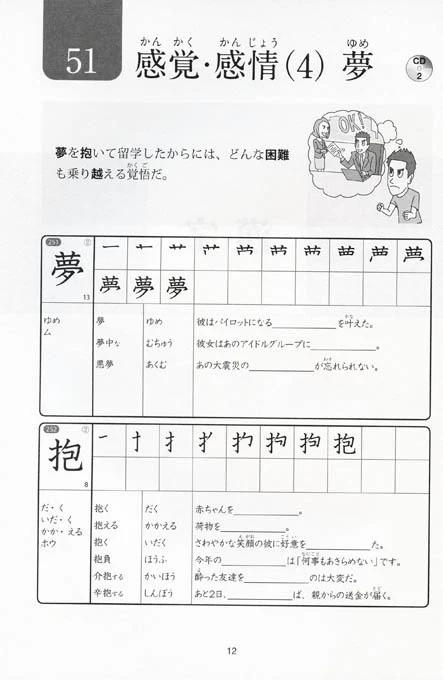 51
かん かく かん じょう ゆめ
感覚・感情(4) 夢
CD
2
夢を抱いて留学したからには、どんな困難
かくご
も乗り越える覚悟だ。
OK!
251 ②
夢
13
夢 夢 夢
ゆめ
ム
夢 ゆめ 彼はパイロットになる＿＿＿＿＿＿を叶えた。
かな
夢中な むちゅう 彼女はあのアイドルグループに＿＿＿＿＿＿。
悪夢 あくむ あの大震災の＿＿＿＿＿＿が忘れられない。
わす
252 ②
抱
8
抱
だ・く
いだ・く
かか・える
ホウ
抱く だく 赤ちゃんを＿＿＿＿＿＿。
抱える かかえる 荷物を＿＿＿＿＿＿。
抱く いだく さわやかな笑顔の彼に好意を＿＿＿＿＿＿た。
抱負 ほうふ 今年の＿＿＿＿＿＿は「何事もあきらめない」です。
介抱する かいほう 酔った友達を＿＿＿＿＿＿のは大変だ。
辛抱する しんぼう あと2日、＿＿＿＿＿＿ば、親からの送金が届く。
12